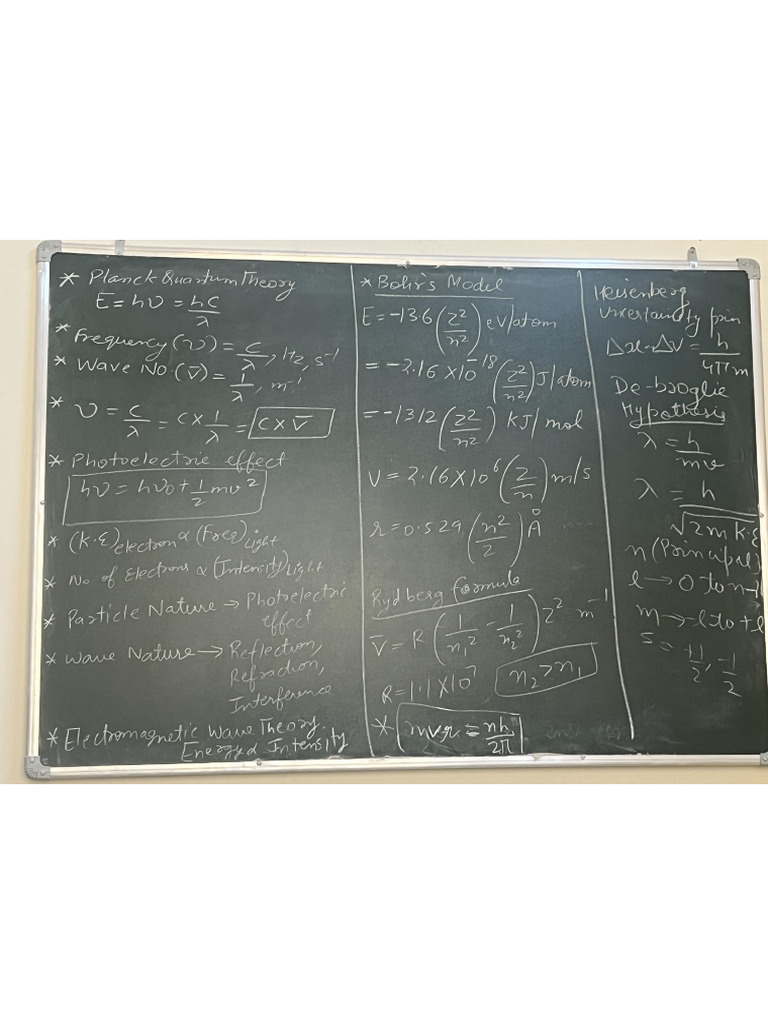 * Planck Quantum Theory
E = hν = hc/λ
* Frequency (ν) = c/λ, Hz, s⁻¹
* Wave No. (ν̅) = 1/λ, m⁻¹
* ν = c/λ = c × 1/λ = c × ν̅
* Photoelectric effect
hν = hν₀ + 1/2 mv²
* (K.E)electron ∝ (Freq)Light
* No of Electrons ∝ (Intensity)Light
* Particle Nature → Photoelectric
effect
* Wave Nature → Reflection,
Refraction,
Interference
* Electromagnetic Wave Theory
Energy ∝ Intensity
* Bohr's Model
E = -13.6 (Z²/n²) eV/atom
= -2.16 × 10⁻¹⁸ (Z²/n²) J/atom
= -1312 (Z²/n²) kJ/mol
V = 2.16 × 10⁶ (Z/n) m/s
r = 0.529 (n²/Z) Å
Rydberg formula
ν̅ = R (1/n₁² - 1/n₂²) Z² m⁻¹
R = 1.1 × 10⁷
n₂ > n₁
* mvr = nh/2π
Heisenberg
Uncertainity prin
Δx·ΔV = h/4πm
De-broglie
Hypothesis
λ = h/mv
λ = h/√2m K.E
n (Principal)
l → 0 to n-1
m → -l to + l
s = +1/2, -1/2